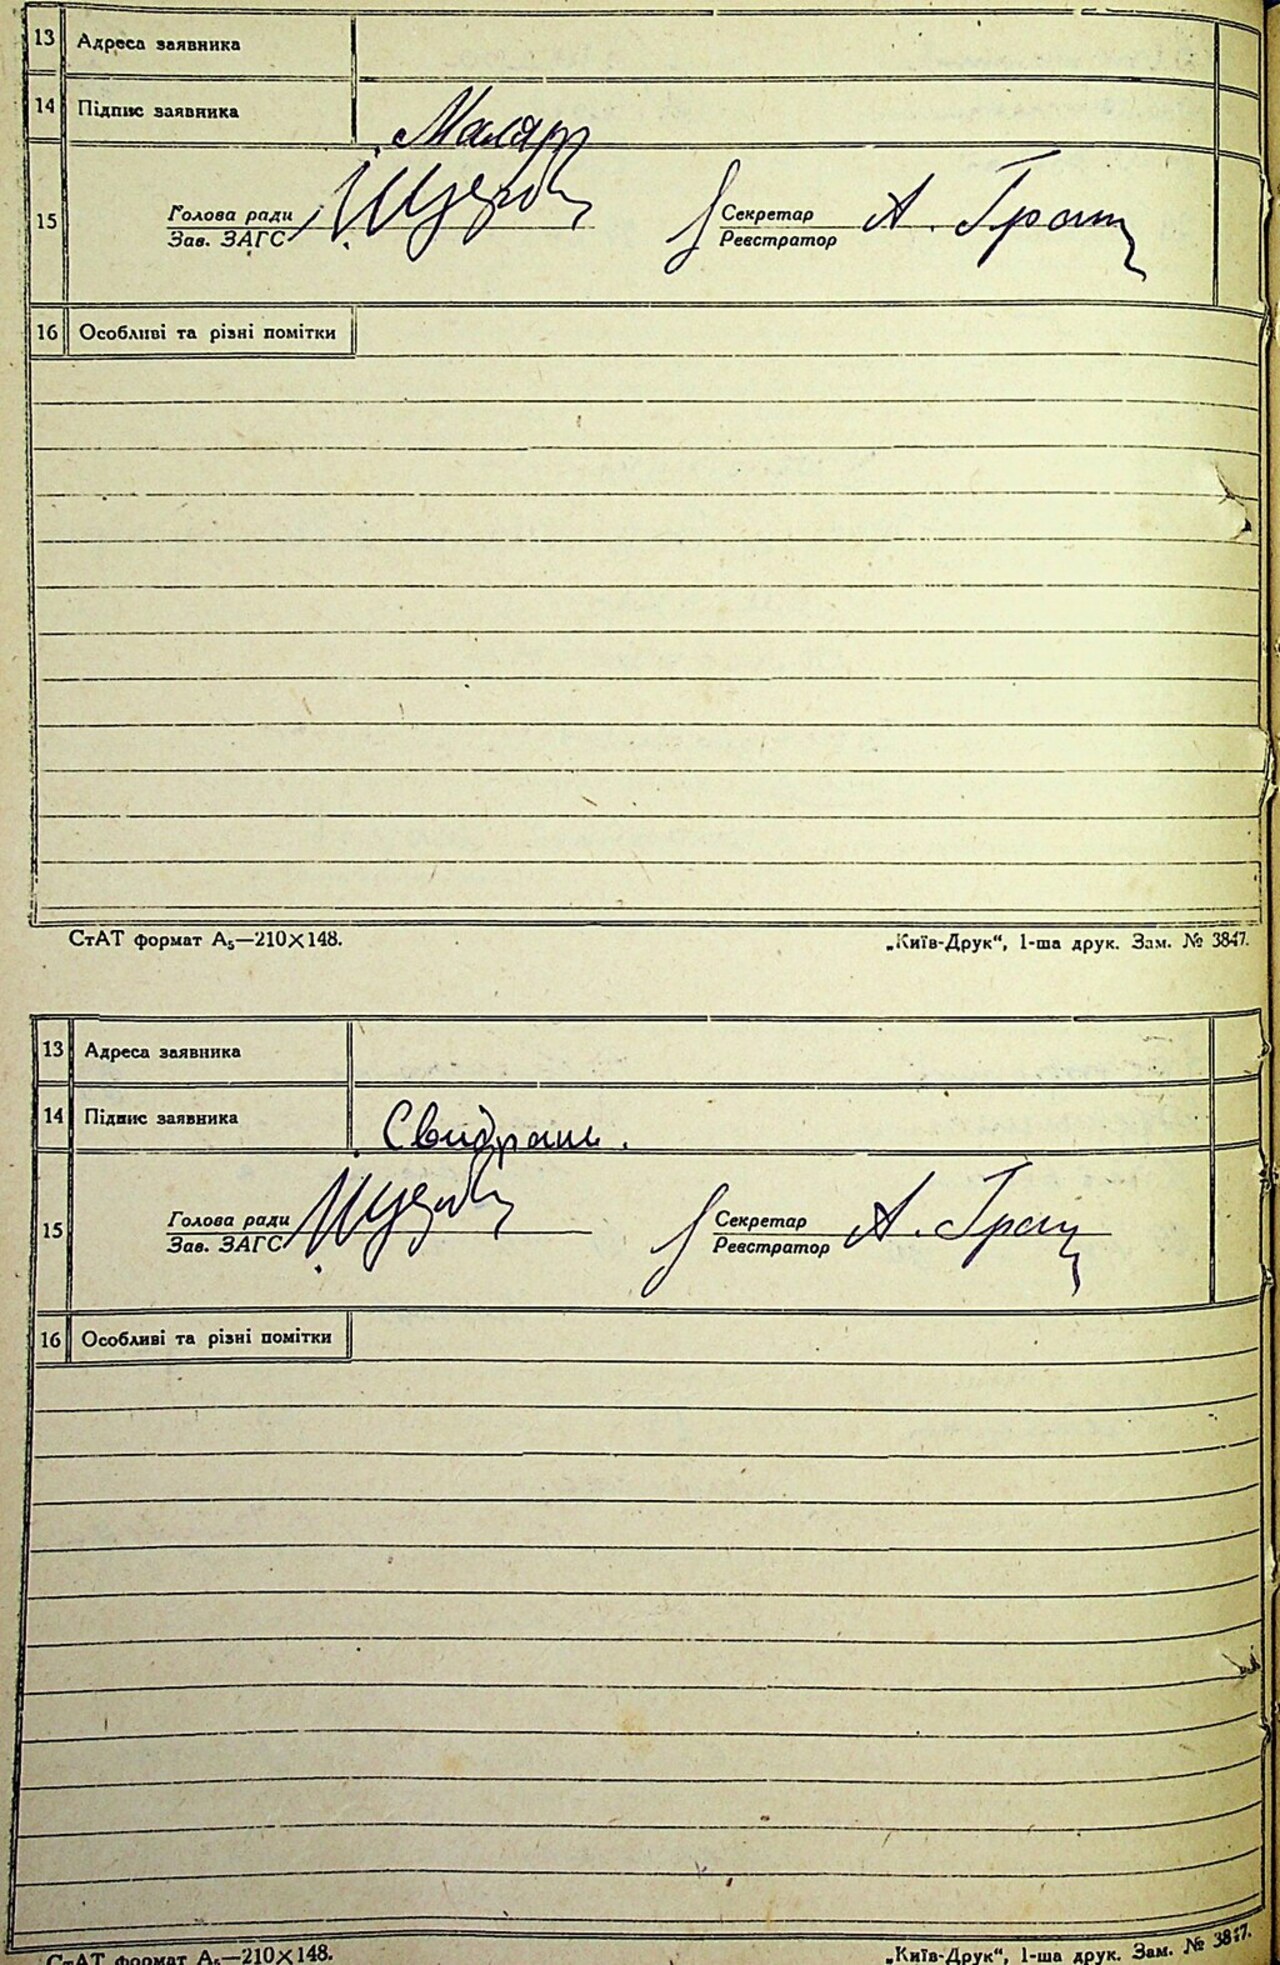 13 Адреса заявника
14 Підпис заявника Маляр
15 Голова ради Секретар А.
Зав. ЗАГС Реєстратор
16 Особливі та різні помітки
СтАТ формат А₅—210×148. „Київ-Друк“, 1-ша друк. Зам. № 3847.
13 Адреса заявника
14 Підпис заявника
15 Голова ради Секретар А.
Зав. ЗАГС Реєстратор
16 Особливі та різні помітки
СтАТ формат А₅—210×148. „Київ-Друк“, 1-ша друк. Зам. № 3847.